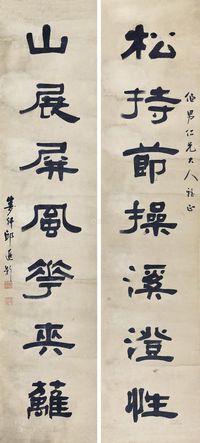 松持節操溪澄性
伯男仁兄大人雅正
山展屏風花夾籬